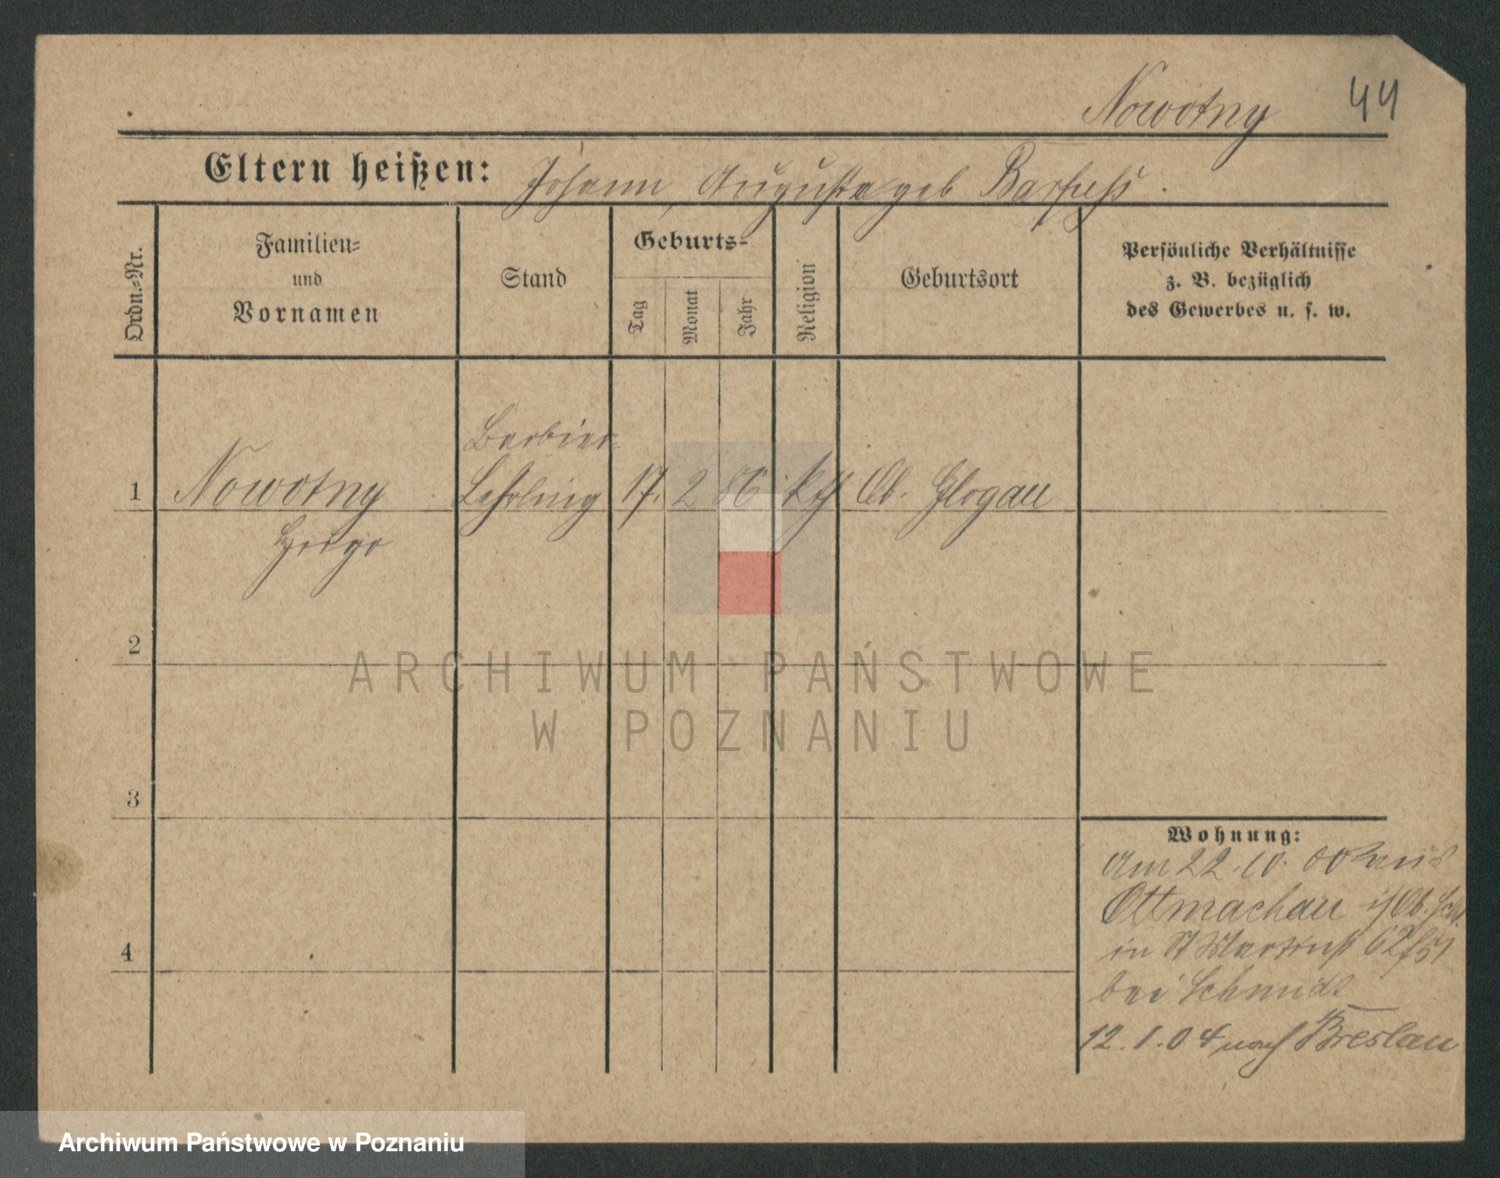 Nowotny 44
Eltern heißen: Johann, Auguste geb Barfuß.
Ordn.=Nr.
Familien=
und
Vornamen
Stand
Geburts=
Tag
Monat
Jahr
Religion
Geburtsort
Persönliche Verhältnisse
z. B. bezüglich
des Gewerbes u. s. w.
1 Nowotny
Barbier-
Lehrling 17. 2 86 kth Ob. Glogau
2
3
4
Wohnung:
Am 22.10.00 aus
Ottmachau i/Ob. Schl
in St Martinst
bei Schmidt
12.1.04 nach Breslau
ARCHIWUM PAŃSTWOWE
W POZNANIU
Archiwum Państwowe w Poznaniu